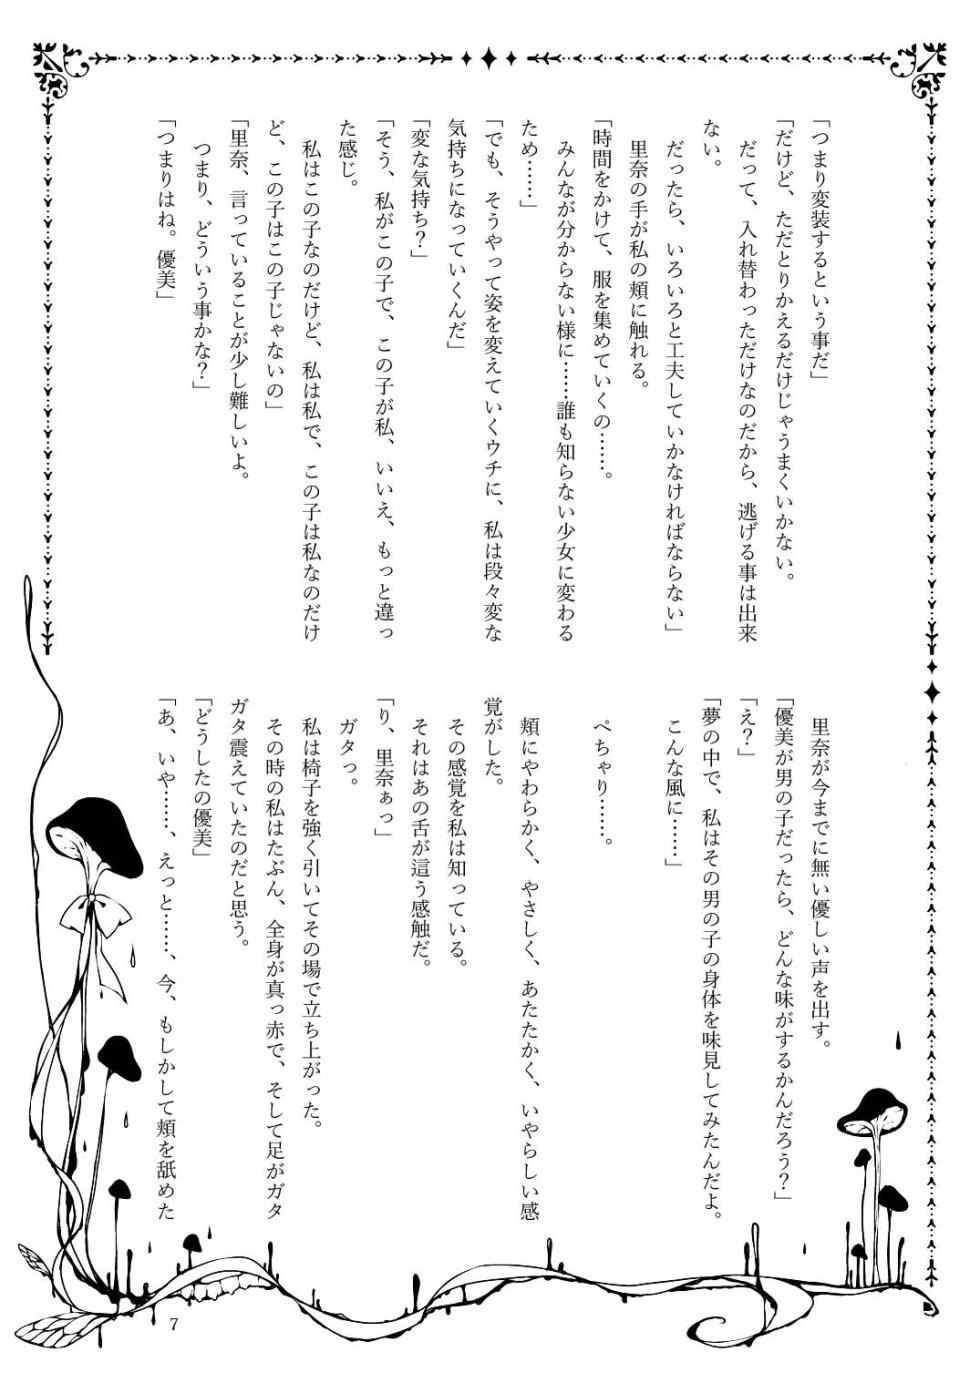 「つまり変装するという事だ」
「だけど、ただとりかえるだけじゃうまくいかない。
だって、入れ替わっただけなのだから、逃げる事は出来
ない。
だったら、いろいろと工夫していかなければならない」
里奈の手が私の頬に触れる。
「時間をかけて、服を集めていくの……。
みんなが分からない様に……誰も知らない少女に変わる
ため……」
「でも、そうやって姿を変えていくウチに、私は段々変な
気持ちになっていくんだ」
「変な気持ち？」
「そう、私がこの子で、この子が私、いいえ、もっと違っ
た感じ。
私はこの子なのだけど、私は私で、この子は私なのだけ
ど、この子はこの子じゃないの」
「里奈、言っていることが少し難しいよ。
つまり、どういう事かな？」
「つまりはね。優美」
里奈が今までに無い優しい声を出す。
「優美が男の子だったら、どんな味がするかんだろう？」
「え？」
「夢の中で、私はその男の子の身体を味見してみたんだよ。
こんな風に……」
ぺちゃり……。
頬にやわらかく、やさしく、あたたかく、いやらしい感
覚がした。
その感覚を私は知っている。
それはあの舌が這う感触だ。
「り、里奈ぁっ」
ガタっ。
私は椅子を強く引いてその場で立ち上がった。
その時の私はたぶん、全身が真っ赤で、そして足がガタ
ガタ震えていたのだと思う。
「どうしたの優美」
「あ、いや……、えっと……、今、もしかして頬を舐めた
7